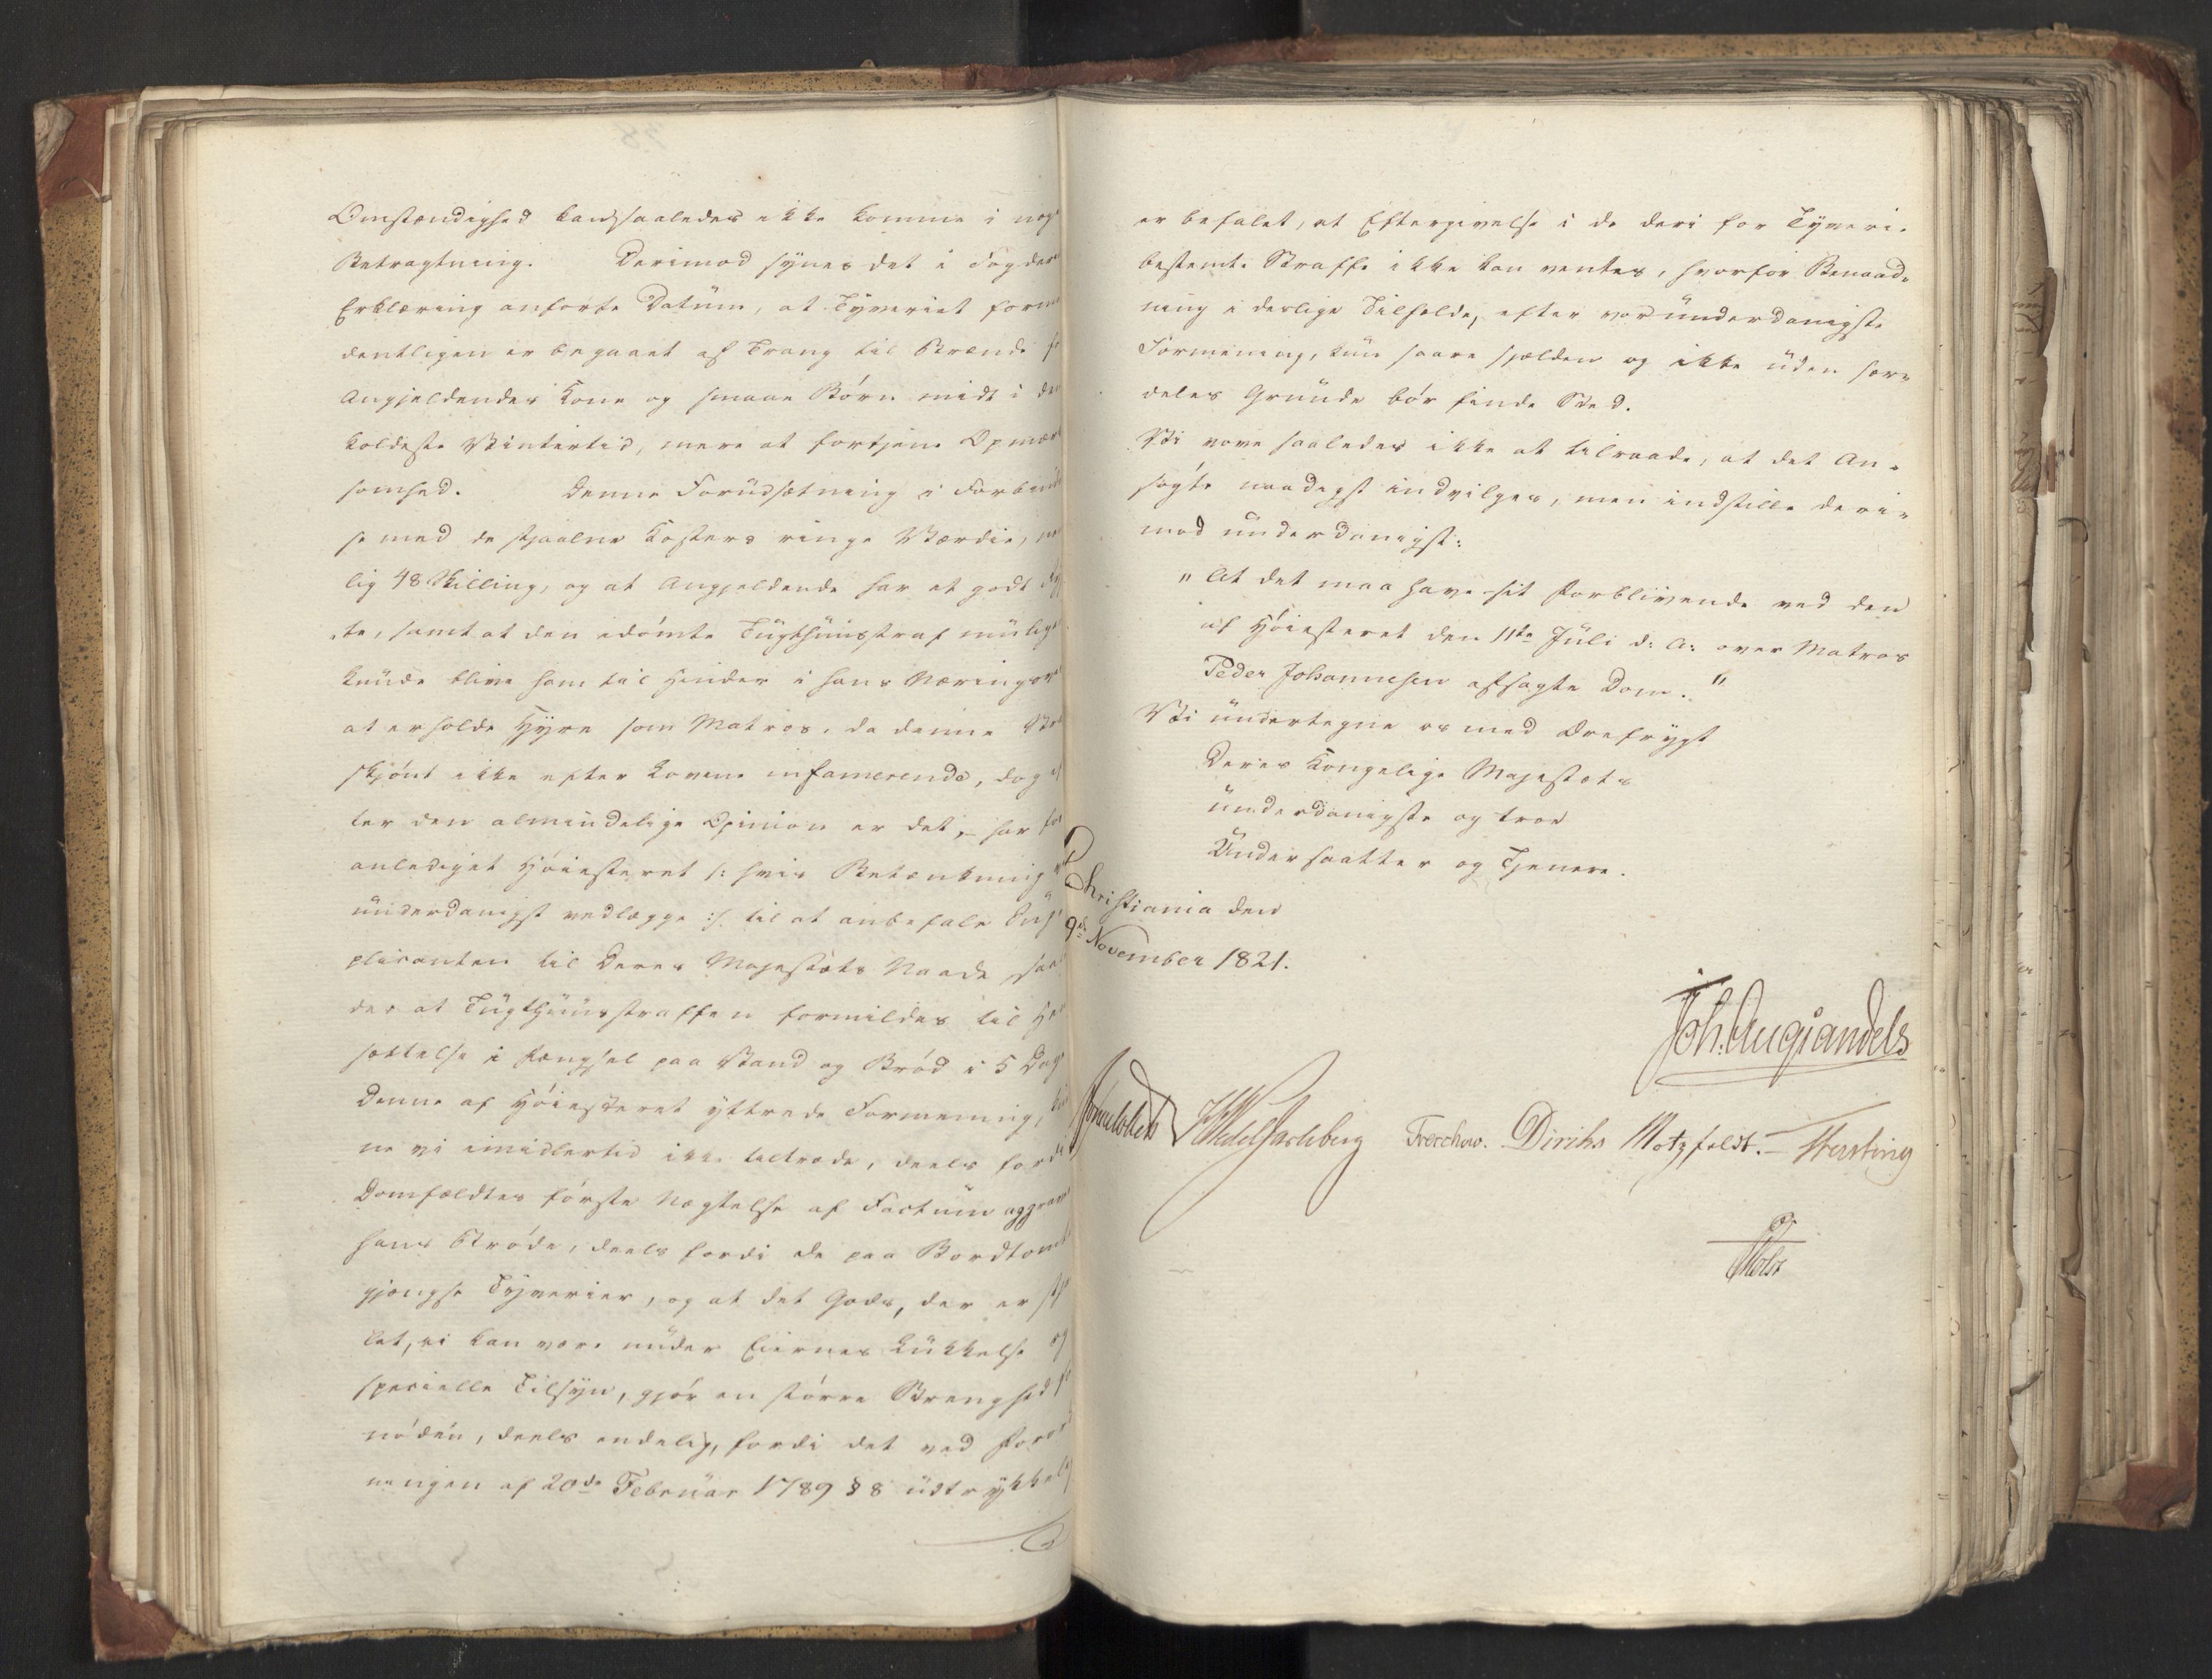 Omstændighed kan saaledes ikke komme i nog
Betragtning. Derimod synes det i Fogdens
Erklæring anførte Datum, at Tyveriet form
dentligen er begaaet af Trang til Brænde
Angjeldendes Kone og smaae Børn midt i den
koldeste Vintertid, mere at fortjene Opmærk
somhed. Denne Forudsætning i Forbindel
se med de stjaalne Kosters ringe Værdie,
lig 48 Skilling, og at Angjeldende har et godt
te, samt at den idømte Tugthuusstraf muligen
kunde blive ham til Hinder i hans Næringsvei
at erholde Hyre som Matros, da denne
skjønt ikke efter Lovene infamerende, dog ef
ter den almindelige Opinion er det, har for
anlediget Høiesteret /: hvis Betænkning
underdanigst vedlægge :/ til at anbefale Sup
plicanten til Deres Majestæts Naade saale
des at Tugthuusstraffen formildes til Hen
sættelse i Fængsel paa Vand og Brød i 5 Dage
Denne af Høiesteret yttrede Formening, kun
ne vi imidlertid ikke tiltræde, deels fordi
Domfældtes første Nægtelse af Factum aggrav
hans Brøde, deels fordi de paa Bordtomt
gjængse Tyverier, og at det Gods, der er stjaa
let, ei kan være under Eiernes Lukkelse og
specielle Tilsyn, gjør en større Strenghed
nødv, deels endelig, fordi det ved Forord
ningen af 20de Februar 1789 § 8 udtrykkelig
er befalet, at Eftergivelse i de deri for Tyveri
bestemte Straffe ikke kan ventes, hvorfor Benaad-
ning i deslige Tilfælde, efter vor underdanigste
Formening, kun saare sjelden og ikke uden sær-
deles Grunde bør finde Sted.
Vi vove saaledes ikke at tilraade, at det An-
søgte naadigst indvilges, men indstille deri-
mod underdanigst:
"At det maa have sit Forblivende ved den
af Høiesteret den 11te Juli d: A: over Matros
Peder Johannesen afsagte Dom."
Vi undertegne os med Ærefrygt
Deres Kongelige Majestæts
underdanigste og troe
Undersaatter og Tjenere.
Christiania den
9de November 1821.
Joh. Aug Sandels
Sommerhielm JHWedelJarlsberg Treschow. Diriks Motzfeldt. Krefting
Holst